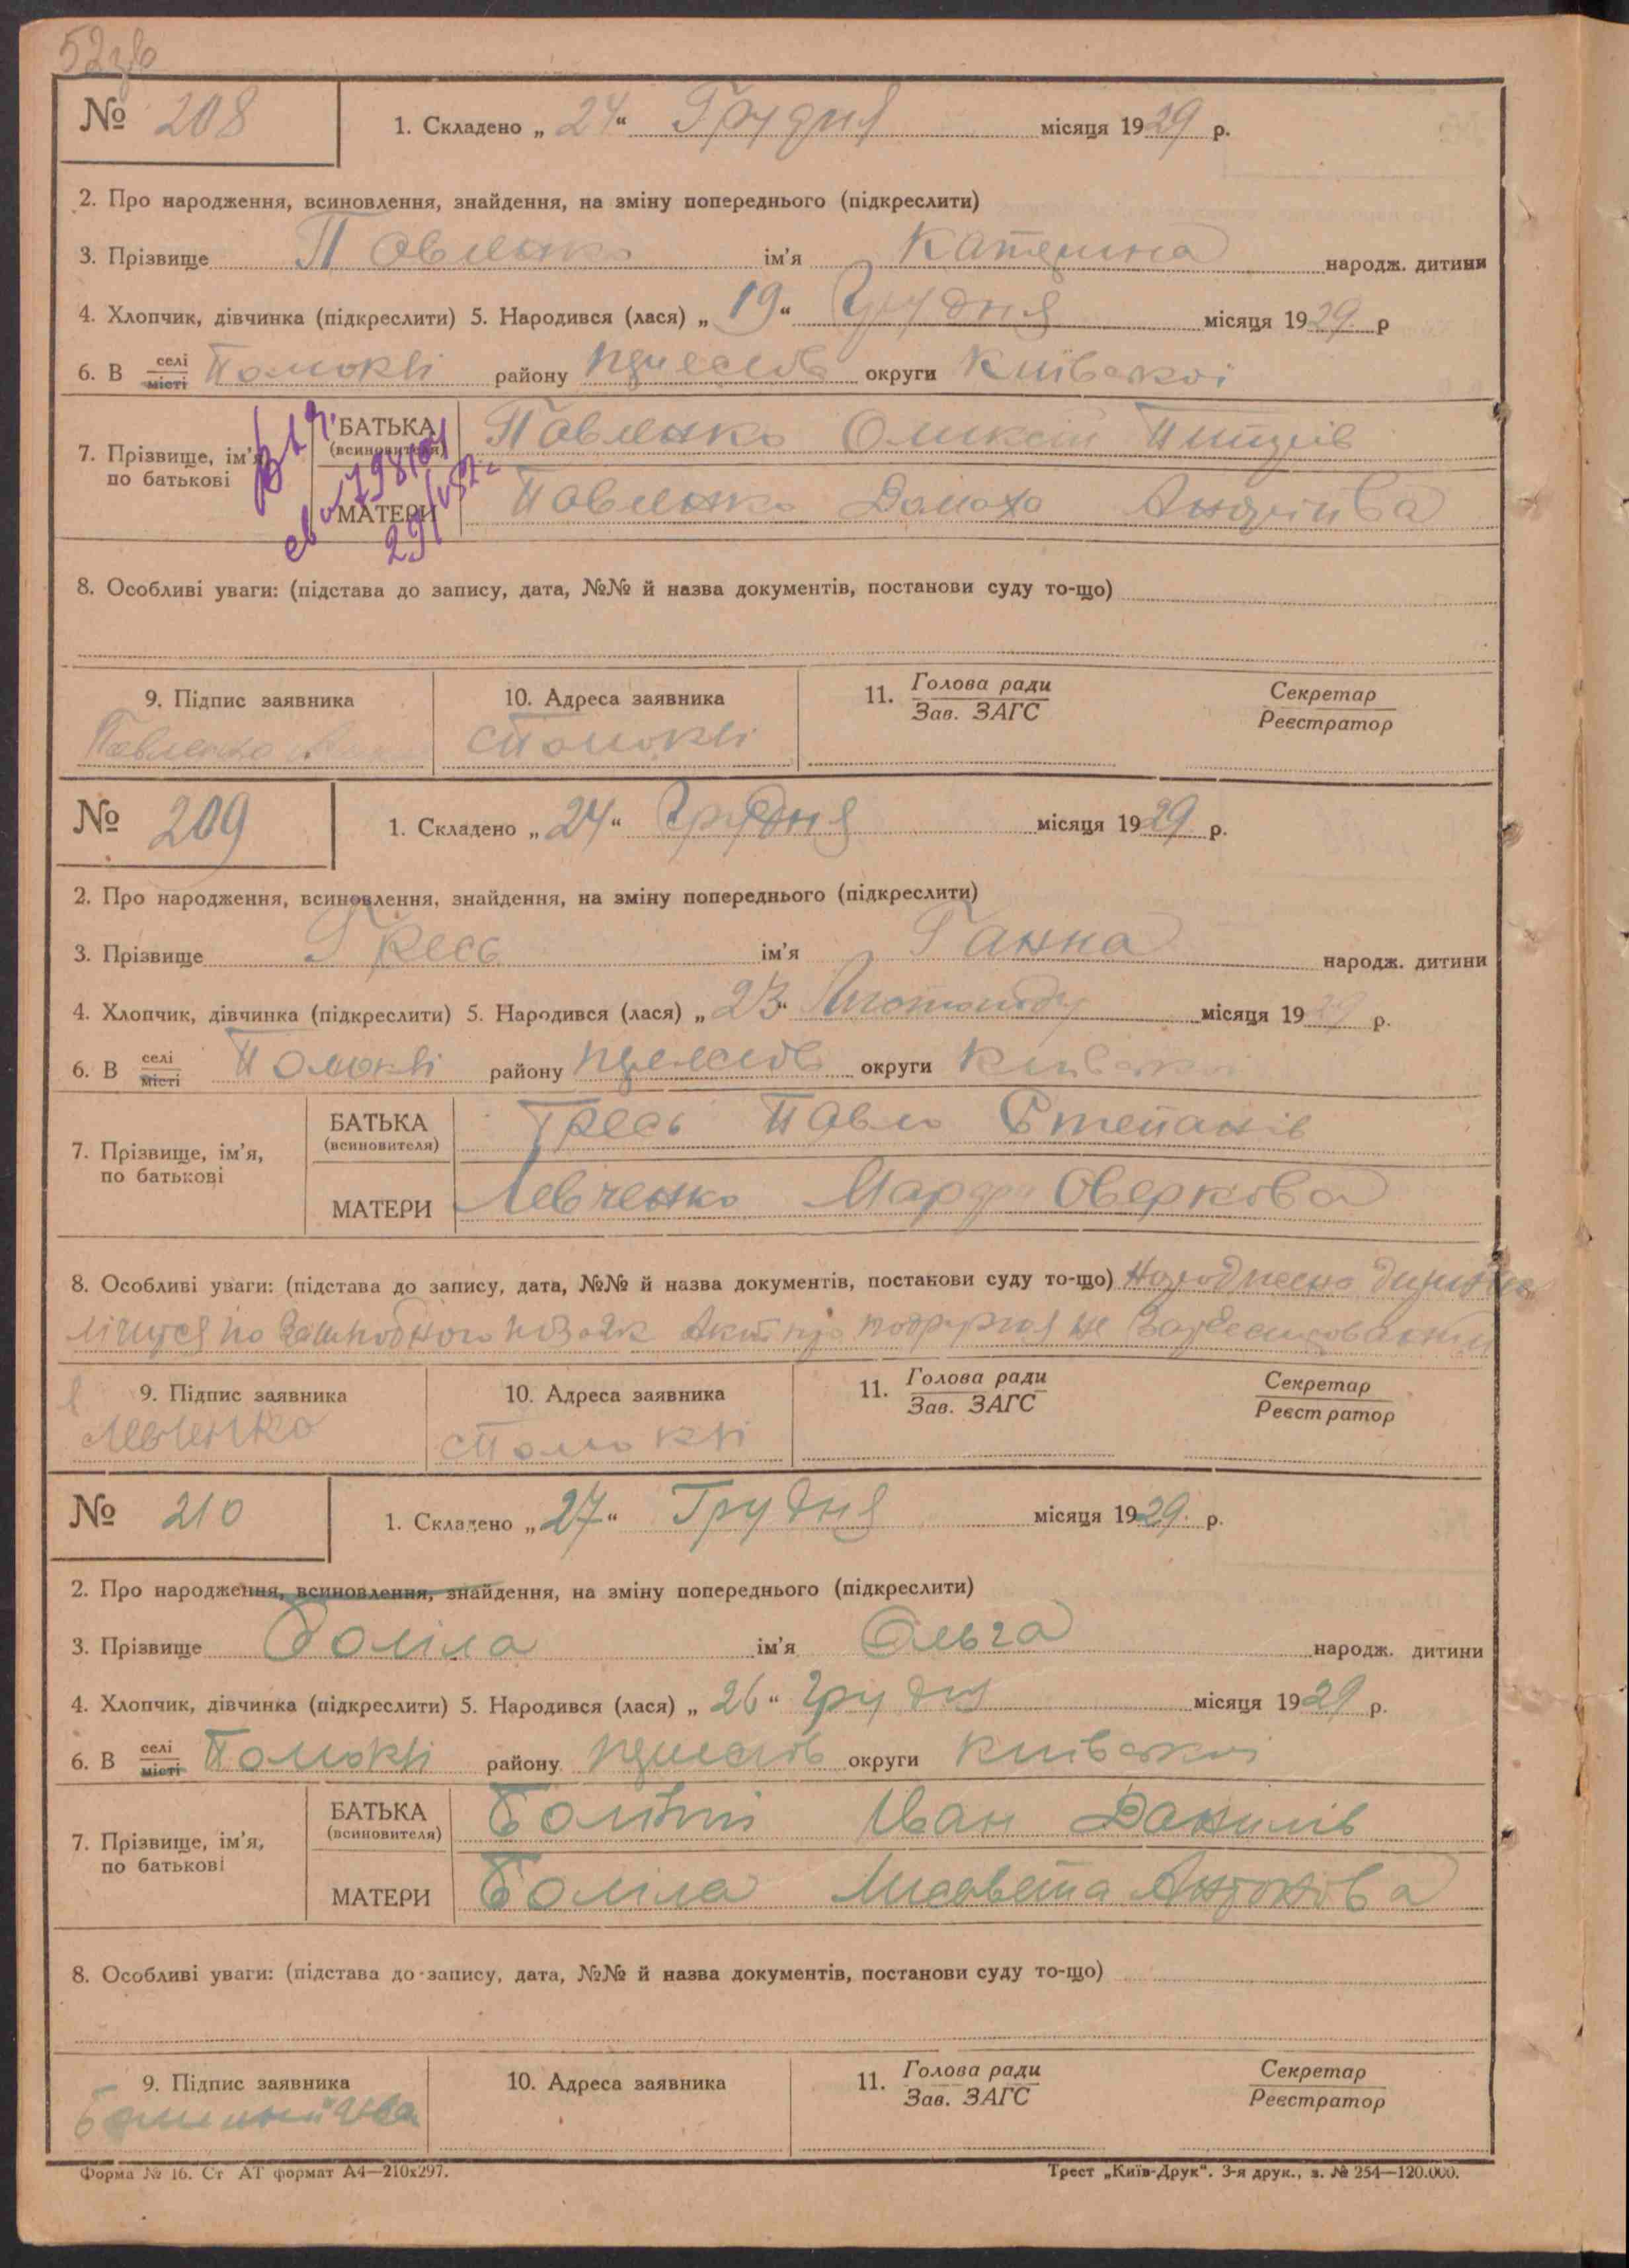 52зв
№ 208 1. Складено „ 24 “ Грудня місяця 1929 р.
2. Про народження, всиновлення, знайдення, на зміну попереднього (підкреслити)
3. Прізвище Павленко ім'я Катерина народж. дитини
4. Хлопчик, дівчинка (підкреслити) 5. Народився (лася) „ 19 “ Грудня місяця 1929 р
6. В селі місті Помоклі району округи Київської
7. Прізвище, ім'я по батькові
БАТЬКА (всиновителя) Павленко Олексій
МАТЕРИ Павленко Домаха Андріїва
8. Особливі уваги: (підстава до запису, дата, №№ й назва документів, постанови суду то-що)
9. Підпис заявника 10. Адреса заявника 11. Голова ради Зав. ЗАГС Секретар Реєстратор
Павленко с Помоклі
№ 209 1. Складено „ 24 “ Грудня місяця 1929 р.
2. Про народження, всиновлення, знайдення, на зміну попереднього (підкреслити)
3. Прізвище Гресь ім'я Ганна народж. дитини
4. Хлопчик, дівчинка (підкреслити) 5. Народився (лася) „ 23 “ Листопаду місяця 1929 р.
6. В селі місті Помоклі району округи Київської
7. Прізвище, ім'я, по батькові
БАТЬКА (всиновителя) Гресь Павло Степанів
МАТЕРИ Левченко Марфа Оверкова
8. Особливі уваги: (підстава до запису, дата, №№ й назва документів, постанови суду то-що) дитина
не
9. Підпис заявника 10. Адреса заявника 11. Голова ради Зав. ЗАГС Секретар Реєстратор
Левченко с Помоклі
№ 210 1. Складено „ 27 “ Грудня місяця 1929 р.
2. Про народження, всиновлення, знайдення, на зміну попереднього (підкреслити)
3. Прізвище Боліла ім'я Ольга народж. дитини
4. Хлопчик, дівчинка (підкреслити) 5. Народився (лася) „ 26 “ Грудня місяця 1929 р.
6. В селі місті Помоклі району округи Київської
7. Прізвище, ім'я, по батькові
БАТЬКА (всиновителя) Іван Данилів
МАТЕРИ Боліла Лисавета Антонова
8. Особливі уваги: (підстава до запису, дата, №№ й назва документів, постанови суду то-що)
9. Підпис заявника 10. Адреса заявника 11. Голова ради Зав. ЗАГС Секретар Реєстратор
Форма № 16. Ст АТ формат А4—210x297. Трест „Київ-Друк“. 3-я друк., з. № 254—120.000.